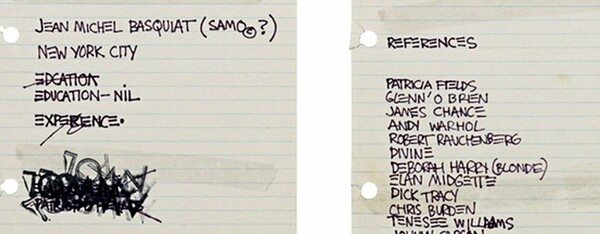 JEAN MICHEL BASQUIAT (SAMO© ?)
NEW YORK CITY
EDCATION
EDUCATION - NIL.
EXPERIENCE.
REFERENCES
PATRICIA FIELDS
GLENN' O BRIEN
JAMES CHANCE
ANDY WARHOL
ROBERT RAUCHENBERG
DIVINE
DEBORAH HARRY (BLONDE)
ELAN MIDGETTE
DICK TRACY
CHRIS BURDEN
TENESEE WILLIAMS